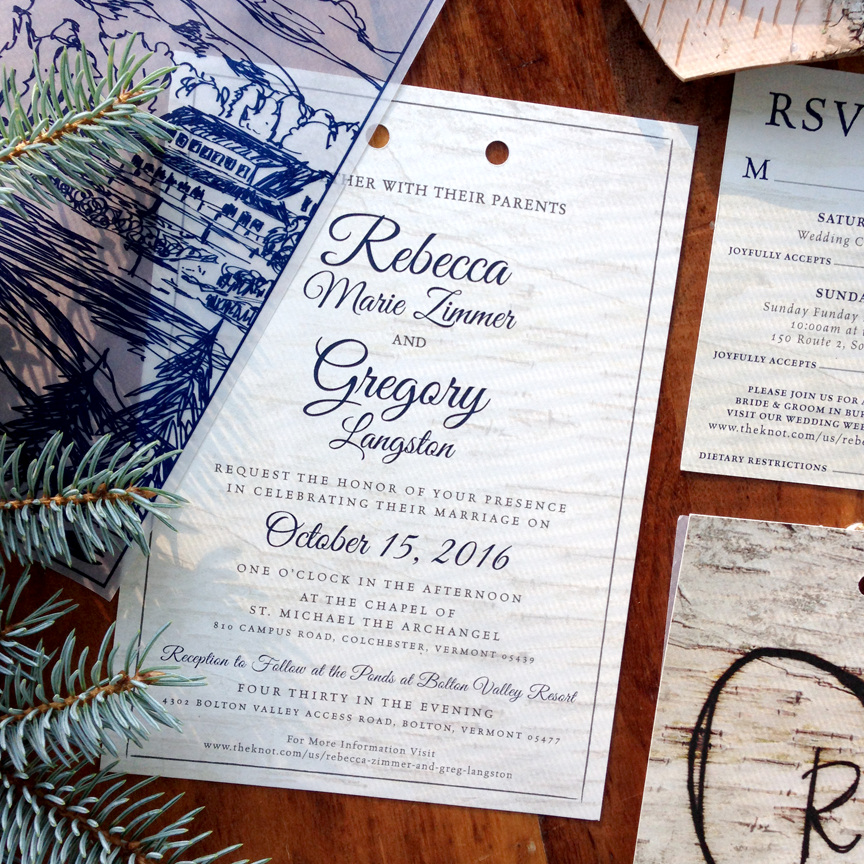 HER WITH THEIR PARENTS
Rebecca
Marie Zimmer
AND
Gregory
Langston
REQUEST THE HONOR OF YOUR PRESENCE
IN CELEBRATING THEIR MARRIAGE ON
October 15, 2016
ONE O'CLOCK IN THE AFTERNOON
AT THE CHAPEL OF
ST. MICHAEL THE ARCHANGEL
810 CAMPUS ROAD, COLCHESTER, VERMONT 05439
Reception to Follow at the Ponds at Bolton Valley Resort
FOUR THIRTY IN THE EVENING
4302 BOLTON VALLEY ACCESS ROAD, BOLTON, VERMONT 05477
For More Information Visit
www.theknot.com/us/rebecca-zimmer-and-greg-langston
RSV
M
SATUR
Wedding C
JOYFULLY ACCEPTS
SUNDA
Sunday Funday
10:00am at
150 Route 2, So
JOYFULLY ACCEPTS
PLEASE JOIN US FOR A
BRIDE & GROOM IN BUR
VISIT OUR WEDDING WE
www.theknot.com/us/rebe
DIETARY RESTRICTIONS
R